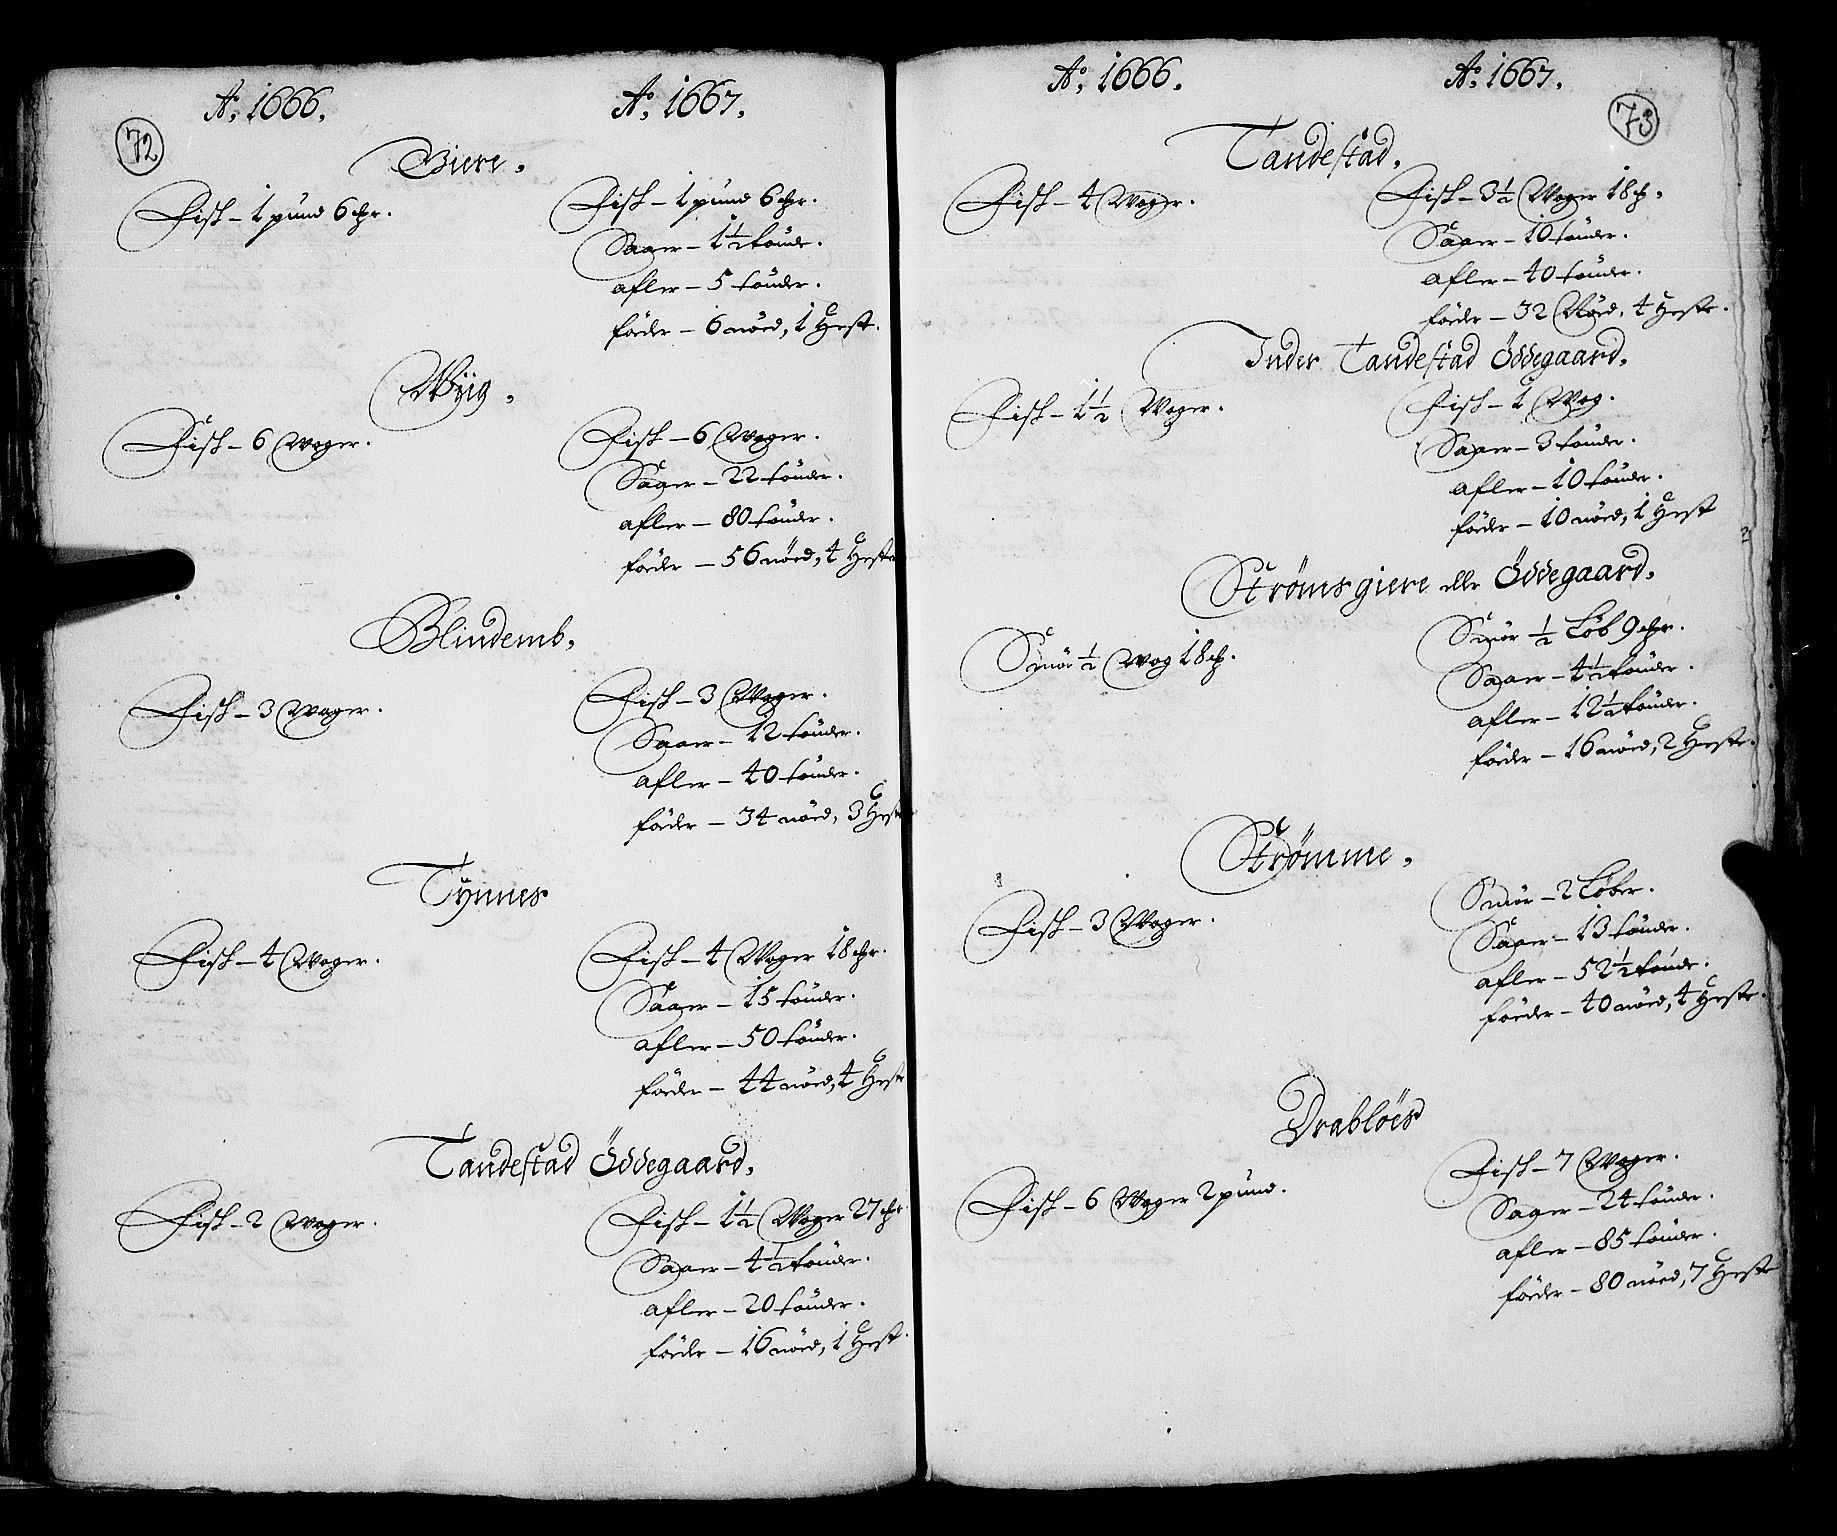 72
Ao. 1666.
Ao. 1667.
Giere.
Fisk – 1 pund 6 chr.
Fisk – 1 pund 6 chr.
Saaer – 1½ tønde.
afler – 5 tønder.
føder – 6 nöed, 1 Hest.
Wÿig.
Fisk – 6 Woger.
Fisk – 6 Woger.
Saaer – 22 tønder.
afler – 80 tønder.
føder – 56 nöed, 4 Heste
Blindemb.
Fisk – 3 Woger.
Fisk – 3 Woger.
Saaer – 12 tønder.
afler – 40 tønder.
føder – 34 nöed, 3 Heste
Tÿnnes
Fisk – 4 Woger.
Fisk – 4 Woger 18 chr.
Saaer – 15 tønder.
afler – 50 tønder.
føder – 44 nöed, 4 Heste
Tandestad Öddegaard.
Fisk – 2 Woger.
Fisk – 1½ Woger 27 chr
Saaer – 4½ tønder.
afler – 20 tønder.
føder – 16 nöed, 1 Hest.
73
Ao. 1666.
Ao. 1667.
Tandestad.
Fisk – 4 Woger.
Fisk – 3½ Woger 18 ch.
Saaer – 10 tønder.
afler – 40 tønder.
føder – 32 Nöed, 4 Heste.
Inder Tandestad Öddegaard.
Fisk – 1½ Woger.
Fisk – 1 Wog.
Saaer – 3 tønder.
afler – 10 tønder.
føder – 10 nöed, 1 Hest
Strømsgiere eller Öddegaard.
Smör ½ Wog 18 ch.
Smör ½ Løb 9 chr.
Saaer – 4½ tønder.
afler – 12½ tønder.
føder – 16 nöed, 2 Heste.
Strømme.
Fisk – 3 Woger.
Smör – 2 Løber.
Saaer – 13 tønder.
afler – 52½ tønde.
føeder – 40 nöed, 4 Heste.
Drablöes
Fisk – 6 Woger 2 pund.
Fisk – 7 Woger.
Saaer – 24 tønder.
afler – 85 tønder.
føder – 80 nöed, 7 Heste